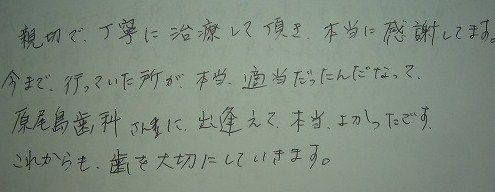 親切で、丁寧に治療して頂き、本当に感謝してます。
今まで、行っていた所が、本当、適当だったんだなって、
原尾島歯科さん様に、出逢えて、本当、よかったです。
これからも、歯を大切にしていきます。